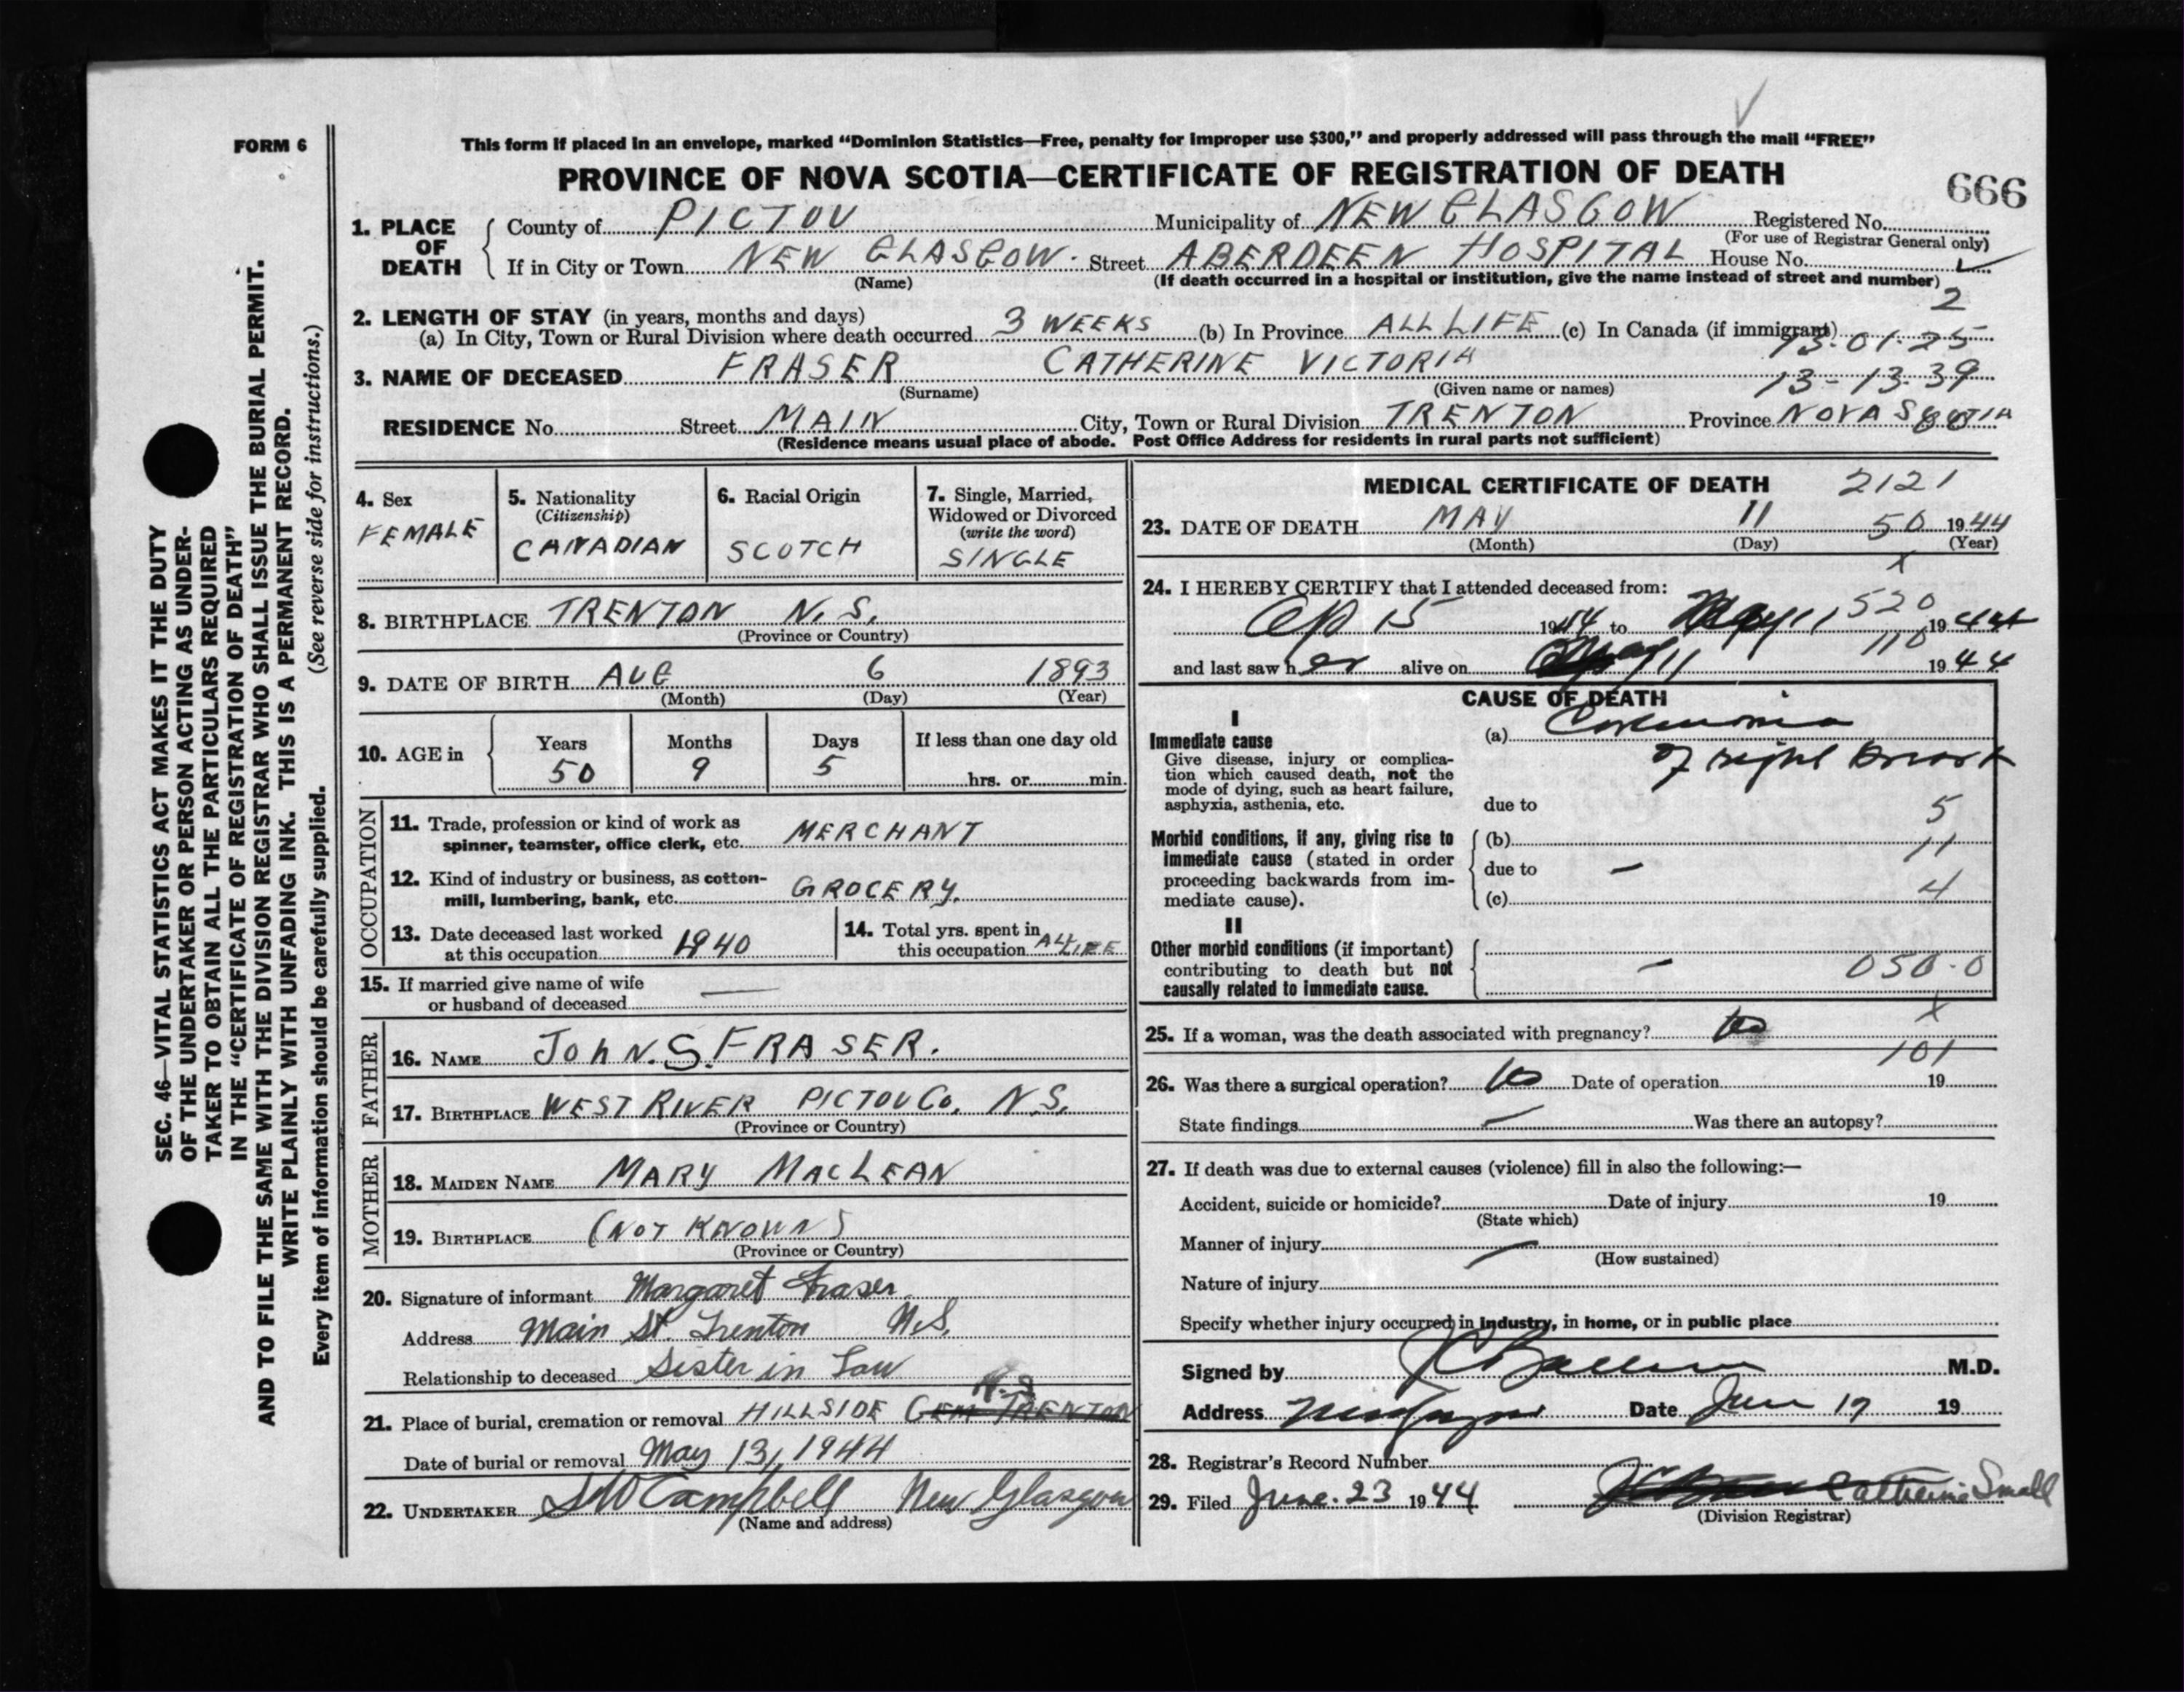 FORM 6
This form if placed in an envelope, marked “Dominion Statistics—Free, penalty for improper use $300,” and properly addressed will pass through the mail “FREE”
PROVINCE OF NOVA SCOTIA—CERTIFICATE OF REGISTRATION OF DEATH
666
1. PLACE OF DEATH
County of PICTOU Municipality of NEW GLASGOW Registered No.
(For use of Registrar General only)
If in City or Town NEW GLASGOW. Street ABERDEEN HOSPITAL House No.
(Name) (If death occurred in a hospital or institution, give the name instead of street and number)
2
2. LENGTH OF STAY (in years, months and days)
(a) In City, Town or Rural Division where death occurred 3 WEEKS (b) In Province ALL LIFE (c) In Canada (if immigrant)
13-01-25
3. NAME OF DECEASED FRASER CATHERINE VICTORIA
(Surname) (Given name or names)
13-13-39
RESIDENCE No. Street MAIN City, Town or Rural Division TRENTON Province NOVA SCOTIA
(Residence means usual place of abode. Post Office Address for residents in rural parts not sufficient)
4. Sex
FEMALE
5. Nationality
(Citizenship)
CANADIAN
6. Racial Origin
SCOTCH
7. Single, Married,
Widowed or Divorced
(write the word)
SINGLE
8. BIRTHPLACE TRENTON N.S.
(Province or Country)
9. DATE OF BIRTH AUG 6 1893
(Month) (Day) (Year)
10. AGE in
Years Months Days If less than one day old
50 9 5 hrs. or min.
OCCUPATION
11. Trade, profession or kind of work as
spinner, teamster, office clerk, etc. MERCHANT
12. Kind of industry or business, as cotton-
mill, lumbering, bank, etc. GROCERY.
13. Date deceased last worked
at this occupation 1940
14. Total yrs. spent in
this occupation
15. If married give name of wife
or husband of deceased —
FATHER
16. NAME JOHN.S. FRASER.
17. BIRTHPLACE WEST RIVER PICTOU CO. N.S.
(Province or Country)
MOTHER
18. MAIDEN NAME MARY MACLEAN
19. BIRTHPLACE (NOT KNOWN)
(Province or Country)
20. Signature of informant Margaret Fraser
Address Main St. Trenton N.S.
Relationship to deceased Sister in Law
N.S
21. Place of burial, cremation or removal HILLSIDE CEM TRENTON
Date of burial or removal May 13, 1944
22. UNDERTAKER Campbell New Glasgow
(Name and address)
MEDICAL CERTIFICATE OF DEATH 2121
23. DATE OF DEATH MAY 11 50 1944
(Month) (Day) (Year)
x
24. I HEREBY CERTIFY that I attended deceased from:
520
Ap 15 1944 to May 11 1944
110
and last saw her alive on May 11 1944
CAUSE OF DEATH
I
Immediate cause
Give disease, injury or complica-
tion which caused death, not the
mode of dying, such as heart failure,
asphyxia, asthenia, etc.
(a)
of right breast
due to
5
Morbid conditions, if any, giving rise to
immediate cause (stated in order
proceeding backwards from im-
mediate cause).
(b)
11
due to —
(c)
4
II
Other morbid conditions (if important)
contributing to death but not
causally related to immediate cause.
—
050.0
x
25. If a woman, was the death associated with pregnancy? No
101
26. Was there a surgical operation? No Date of operation 19
State findings — Was there an autopsy?
27. If death was due to external causes (violence) fill in also the following:—
Accident, suicide or homicide? Date of injury 19
(State which)
Manner of injury —
(How sustained)
Nature of injury
Specify whether injury occurred in industry, in home, or in public place
Signed by M.D.
Address Date June 17 19
28. Registrar's Record Number
29. Filed June. 23 1944 Catherine Small
(Division Registrar)
SEC. 46—VITAL STATISTICS ACT MAKES IT THE DUTY
OF THE UNDERTAKER OR PERSON ACTING AS UNDER-
TAKER TO OBTAIN ALL THE PARTICULARS REQUIRED
IN THE “CERTIFICATE OF REGISTRATION OF DEATH”
AND TO FILE THE SAME WITH THE DIVISION REGISTRAR WHO SHALL ISSUE THE BURIAL PERMIT.
WRITE PLAINLY WITH UNFADING INK. THIS IS A PERMANENT RECORD.
Every item of information should be carefully supplied. (See reverse side for instructions.)